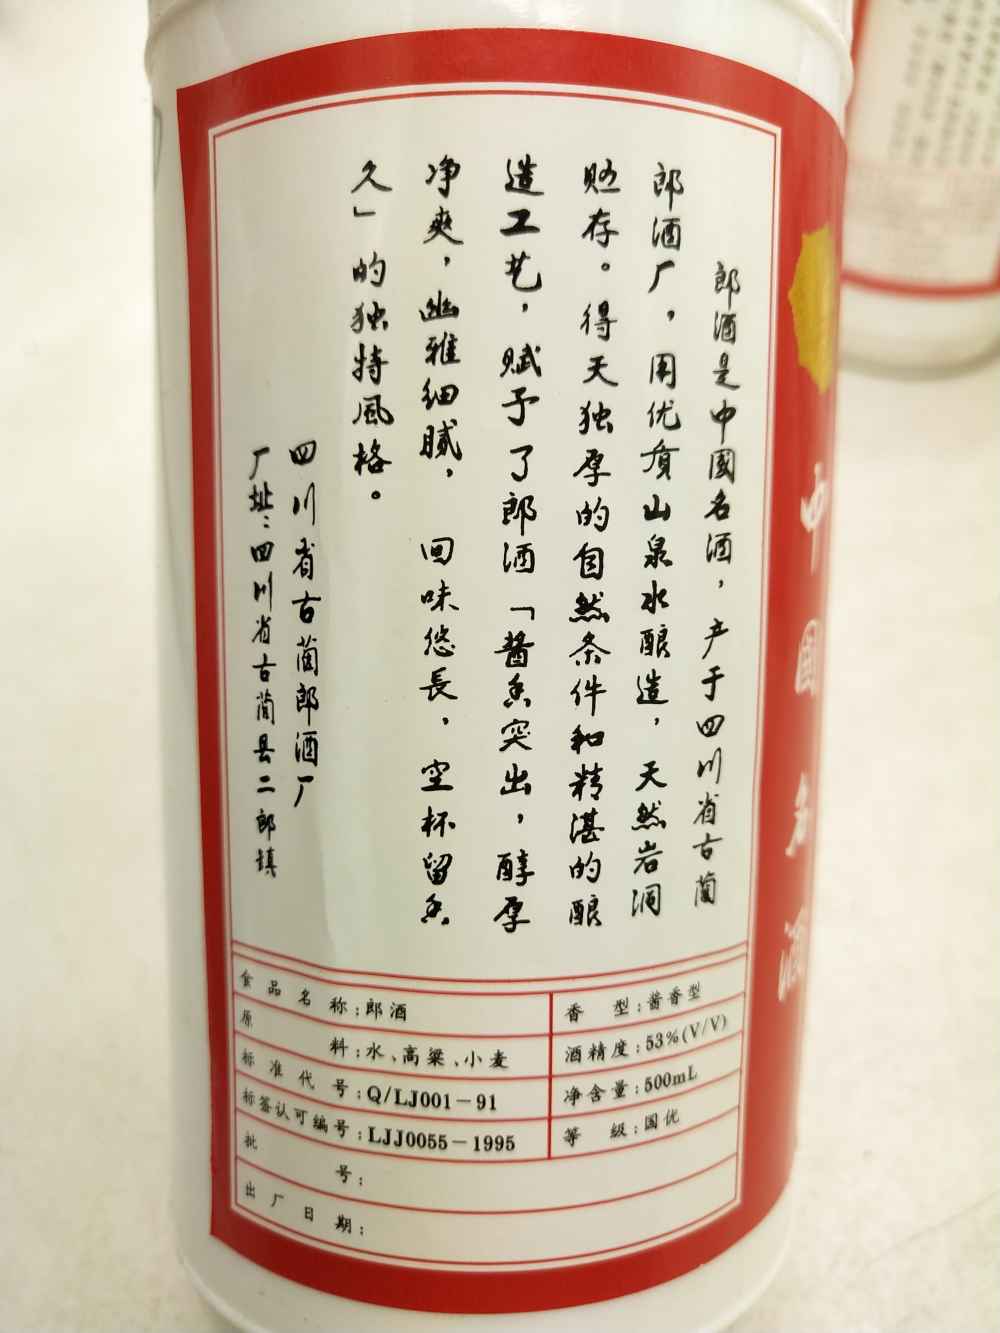 郎酒是中國名酒，产于四川省古蔺
郎酒厂，用优质山泉水酿造，天然岩洞
贮存。得天独厚的自然条件和精湛的酿
造工艺，赋予了郎酒「酱香突出，醇厚
净爽，幽雅细腻，回味悠長，空杯留香
久」的独特風格。
四川省古蔺郎酒厂
厂址：四川省古蔺县二郎镇
中国名酒
食品名称：郎酒
香型：酱香型
原料：水、高粱、小麦
酒精度：53%(V/V)
标准代号：Q/LJ001－91
净含量：500mL
标签认可编号：LJJ0055－1995
等级：国优
批号：
出厂日期：